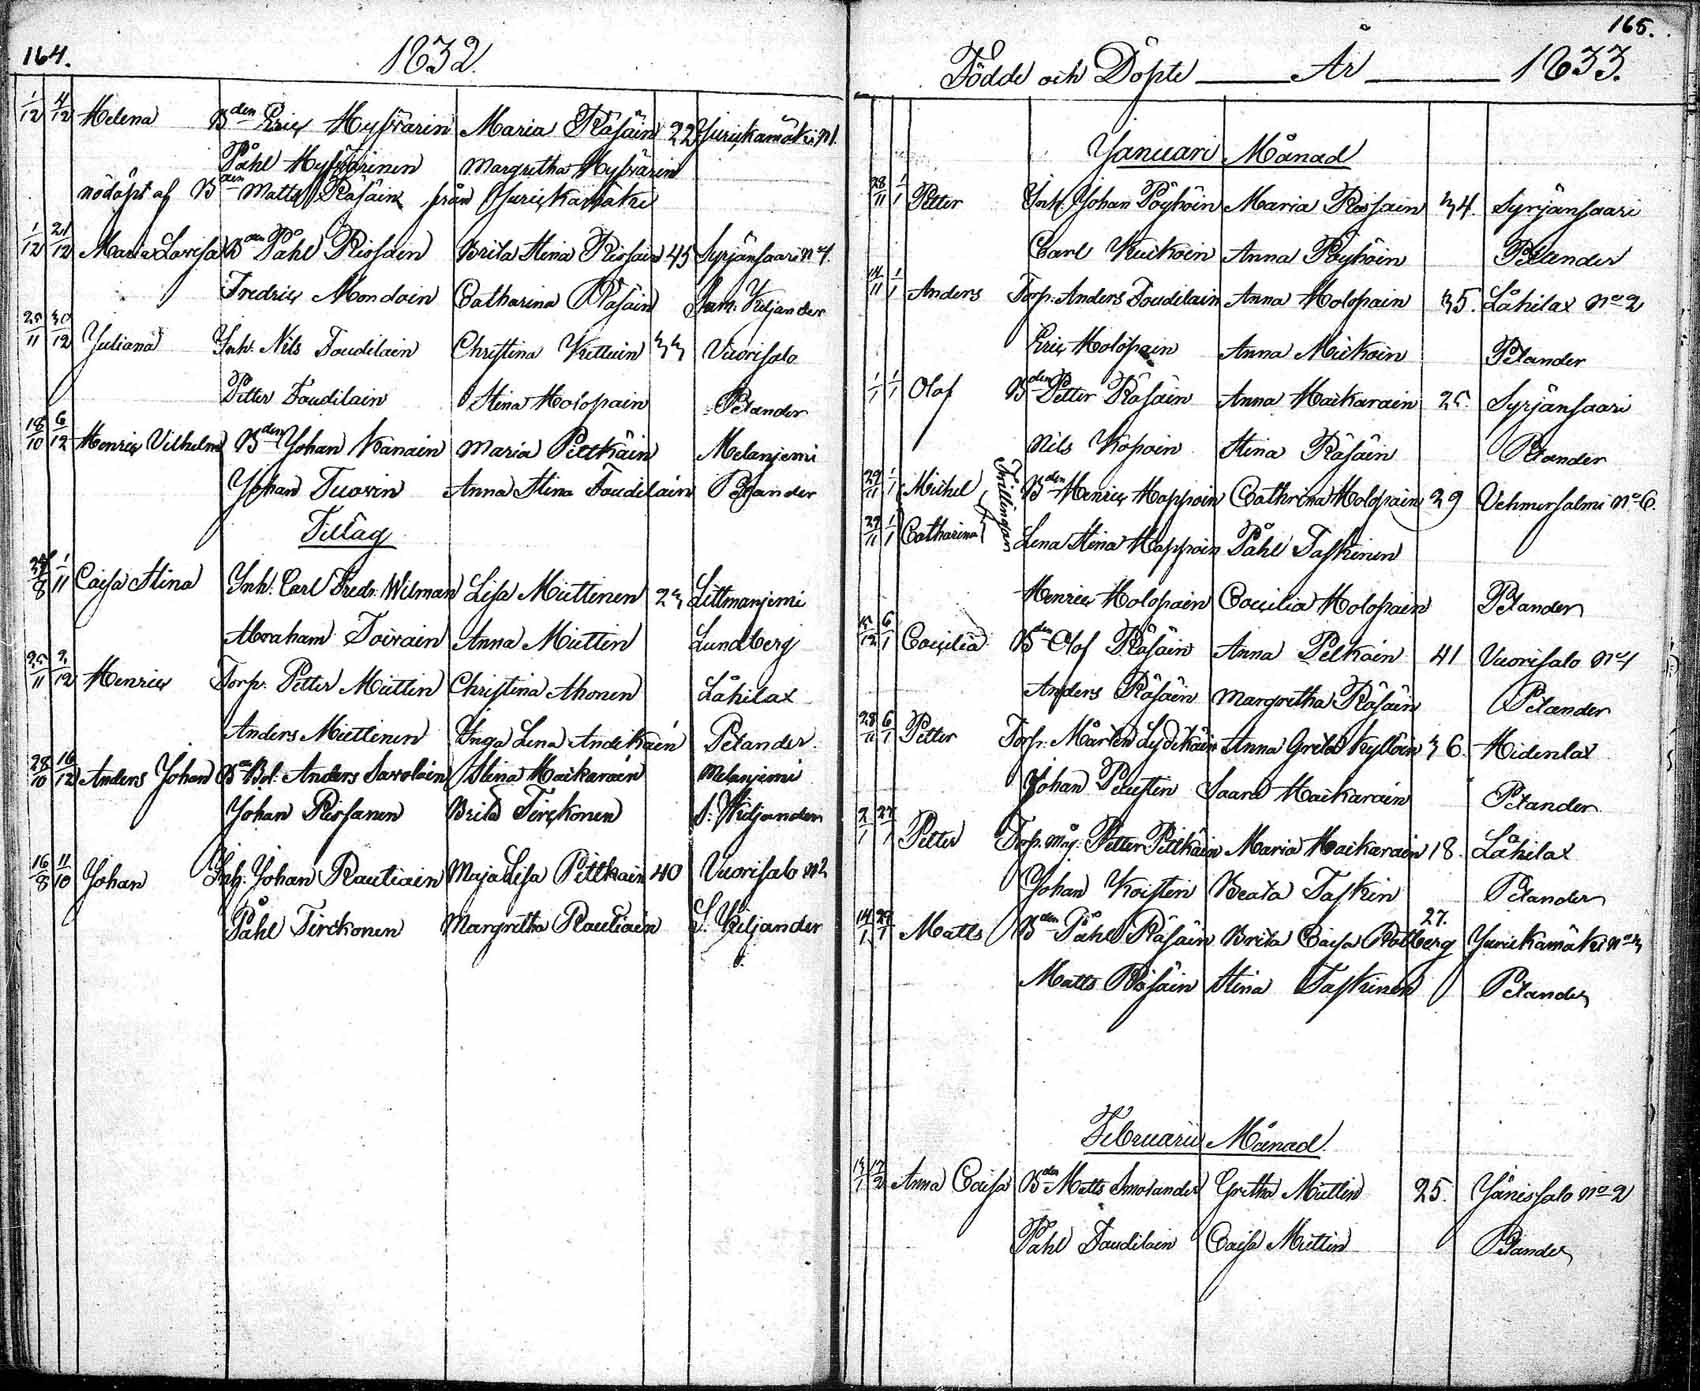 164.
1832.
1/12 4/12 Helena Bden Eric Hyfvärin Maria Räsäin 22 Jurickamäki N1.
Påhl Hyfvärinen Margretha Hyfvärin
nöddöpt af Bden Matts Räsäin från Jurickamäki
1/12 21/12 Maria Lovisa Bden Påhl Rissäin Brita Stina Rissain 45 Syrjänsaari No 4.
Fredric Mondain Catharina Räsäin Sam. Kiljander
25/11 30/12 Juliana Inh. Nils Toudilain Christina Kettuin 33 Vuorisalo
Petter Toudilain Stina Holopain Pelander
18/10 6/12 Henric Vilhelm Bden Johan Nänäin Maria Pittkäin Melanjemi
Johan Tuovin Anna Stina Toudiläin Pelander
Tilläg
1/11 Caisa Stina Inh. Carl Fredr. Wilman Lisa Miettinen 23 Littmanjemi
Abraham Toivain Anna Miettin Lundberg
25/11 2/12 Henric Torp. Petter Miettin Christina Ahonen Låhilax
Anders Miettinen Inga Lena Andikäin Pelander.
28/10 16/12 Anders Johan Anders Savolain Stina Haikaräin Melanjemi
Johan Rissanen Brita Tirckonen S. Kiljander
16/8 11/10 Johan Inh. Johan Rautiain Maja Lisa Pittkäin 40 Vuorisalo No 2
Påhl Tirckonen Margretha Rautiain S. Kiljander
165.
Födde och Döpte År 1833.
Januari Månad
28/11 1/1 Petter Inh. Johan Pöyhöin Maria Rissain 34. Syrjänsaari
Carl Keikoin Anna Pöyhöin Pelander
14/11 1/1 Anders Torp. Anders Toudilain Anna Holopain 35. Låhilax No 2
Eric Holopain Anna Miekoin Pelander
1/1 1/1 Olof Bden Petter Räsäin Anna Haikarain 25. Syrjänsaari
Nils Kopoin Stina Räsäin Pelander
29/11 1/1 Michel Tvillingar Bden Henric Happoin Cathrina Holopain 29 Vehmersalmi No 6.
29/11 1/1 Catharina Lena Stina Happoin Påhl Taskinen
Henric Holopain Coecilia Holopain Pelander
15/12 6/1 Coecilia Bden Olof Räsäin Anna Pelkäin 41 Vuorisalo No 1
Anders Räsäin Margretha Räsäin Pelander
28/11 6/1 Petter Torp. Mårten Lydikäin Anna Greta Kyllöin 36. Hidenlax
Johan Peustin Saara Haikarain Pelander
2/1 27/1 Petter Torp. måg. Petter Pittkäin Maria Haikarain 18. Låhilax
Johan Koistin Beata Taskin Pelander
14/1 29/1 Matts Bden Påhl Räsäin Brita Caisa Rotberg 27. Jurickamäki No 3
Matts Räsäin Stina Taskinen Pelander
Februarii Månad.
13/1 17/2 Anna Caisa Bden Matts Smolander Gretha Miettin 25. Jänissalo No 2
Påhl Toudilain Caisa Miettin Pelander